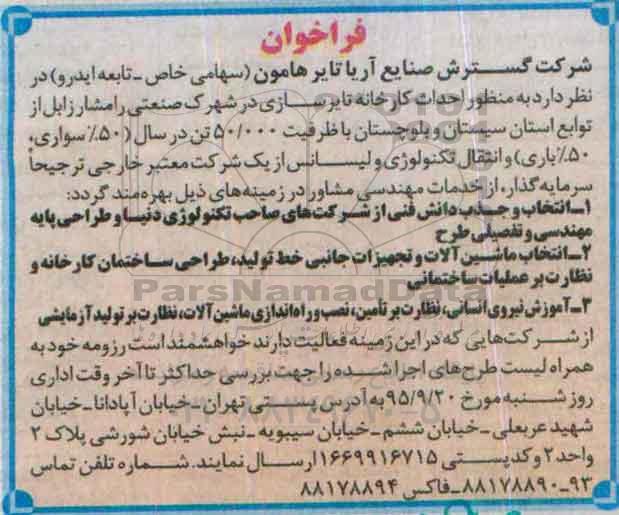 فراخوان
شرکت گسترش صنایع آریا تایر هامون (سهامی خاص - تابعه ایدرو) در
نظر دارد به منظور احداث کارخانه تایرسازی در شهرک صنعتی رامشار زابل از
توابع استان سیستان و بلوچستان با ظرفیت ۵۰/۰۰۰ تن در سال (۵۰٪ سواری،
۵۰٪ باری) و انتقال تکنولوژی و لیسانس از یک شرکت معتبر خارجی ترجیحاً
سرمایه‌گذار، از خدمات مهندسی مشاور در زمینه‌های ذیل بهره‌مند گردد:
۱- انتخاب و جذب دانش فنی از شرکت‌های صاحب تکنولوژی دنیا و طراحی پایه
مهندسی و تفصیلی طرح
۲- انتخاب ماشین‌آلات و تجهیزات جانبی خط تولید، طراحی ساختمان کارخانه و
نظارت بر عملیات ساختمانی
۳- آموزش نیروی انسانی، نظارت بر تأمین، نصب و راه‌اندازی ماشین‌آلات، نظارت بر تولید آزمایشی
از شرکت‌هایی که در این زمینه فعالیت دارند خواهشمند است رزومه خود به
همراه لیست طرح‌های اجرا شده را جهت بررسی حداکثر تا آخر وقت اداری
روز شنبه مورخ ۹۵/۹/۲۰ به آدرس پستی تهران - خیابان آپادانا - خیابان
شهید عربعلی - خیابان ششم - خیابان سیبویه - نبش خیابان شورشی پلاک ۲
واحد ۲ و کدپستی ۱۶۶۹۹۱۶۷۱۵ ارسال نمایند. شماره تلفن تماس
۹۳-۸۸۱۷۸۸۹۰ - فاکس ۸۸۱۷۸۸۹۴
ParsNamadData